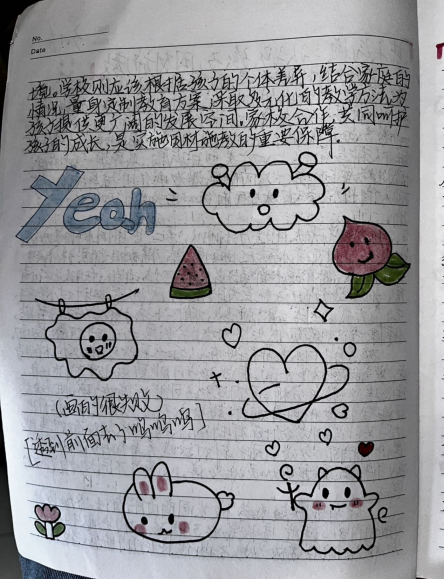 No.
Date
境。学校则应该根据孩子的个体差异，结合家庭的
情况，量身定制教育方案，采取多元化的教学方法，为
孩子提供更广阔的发展空间。家校合作，共同呵护
孩子的成长，是实施因材施教的重要保障。
Yeah
（画的很失败）
[透到前面去了呜呜呜]